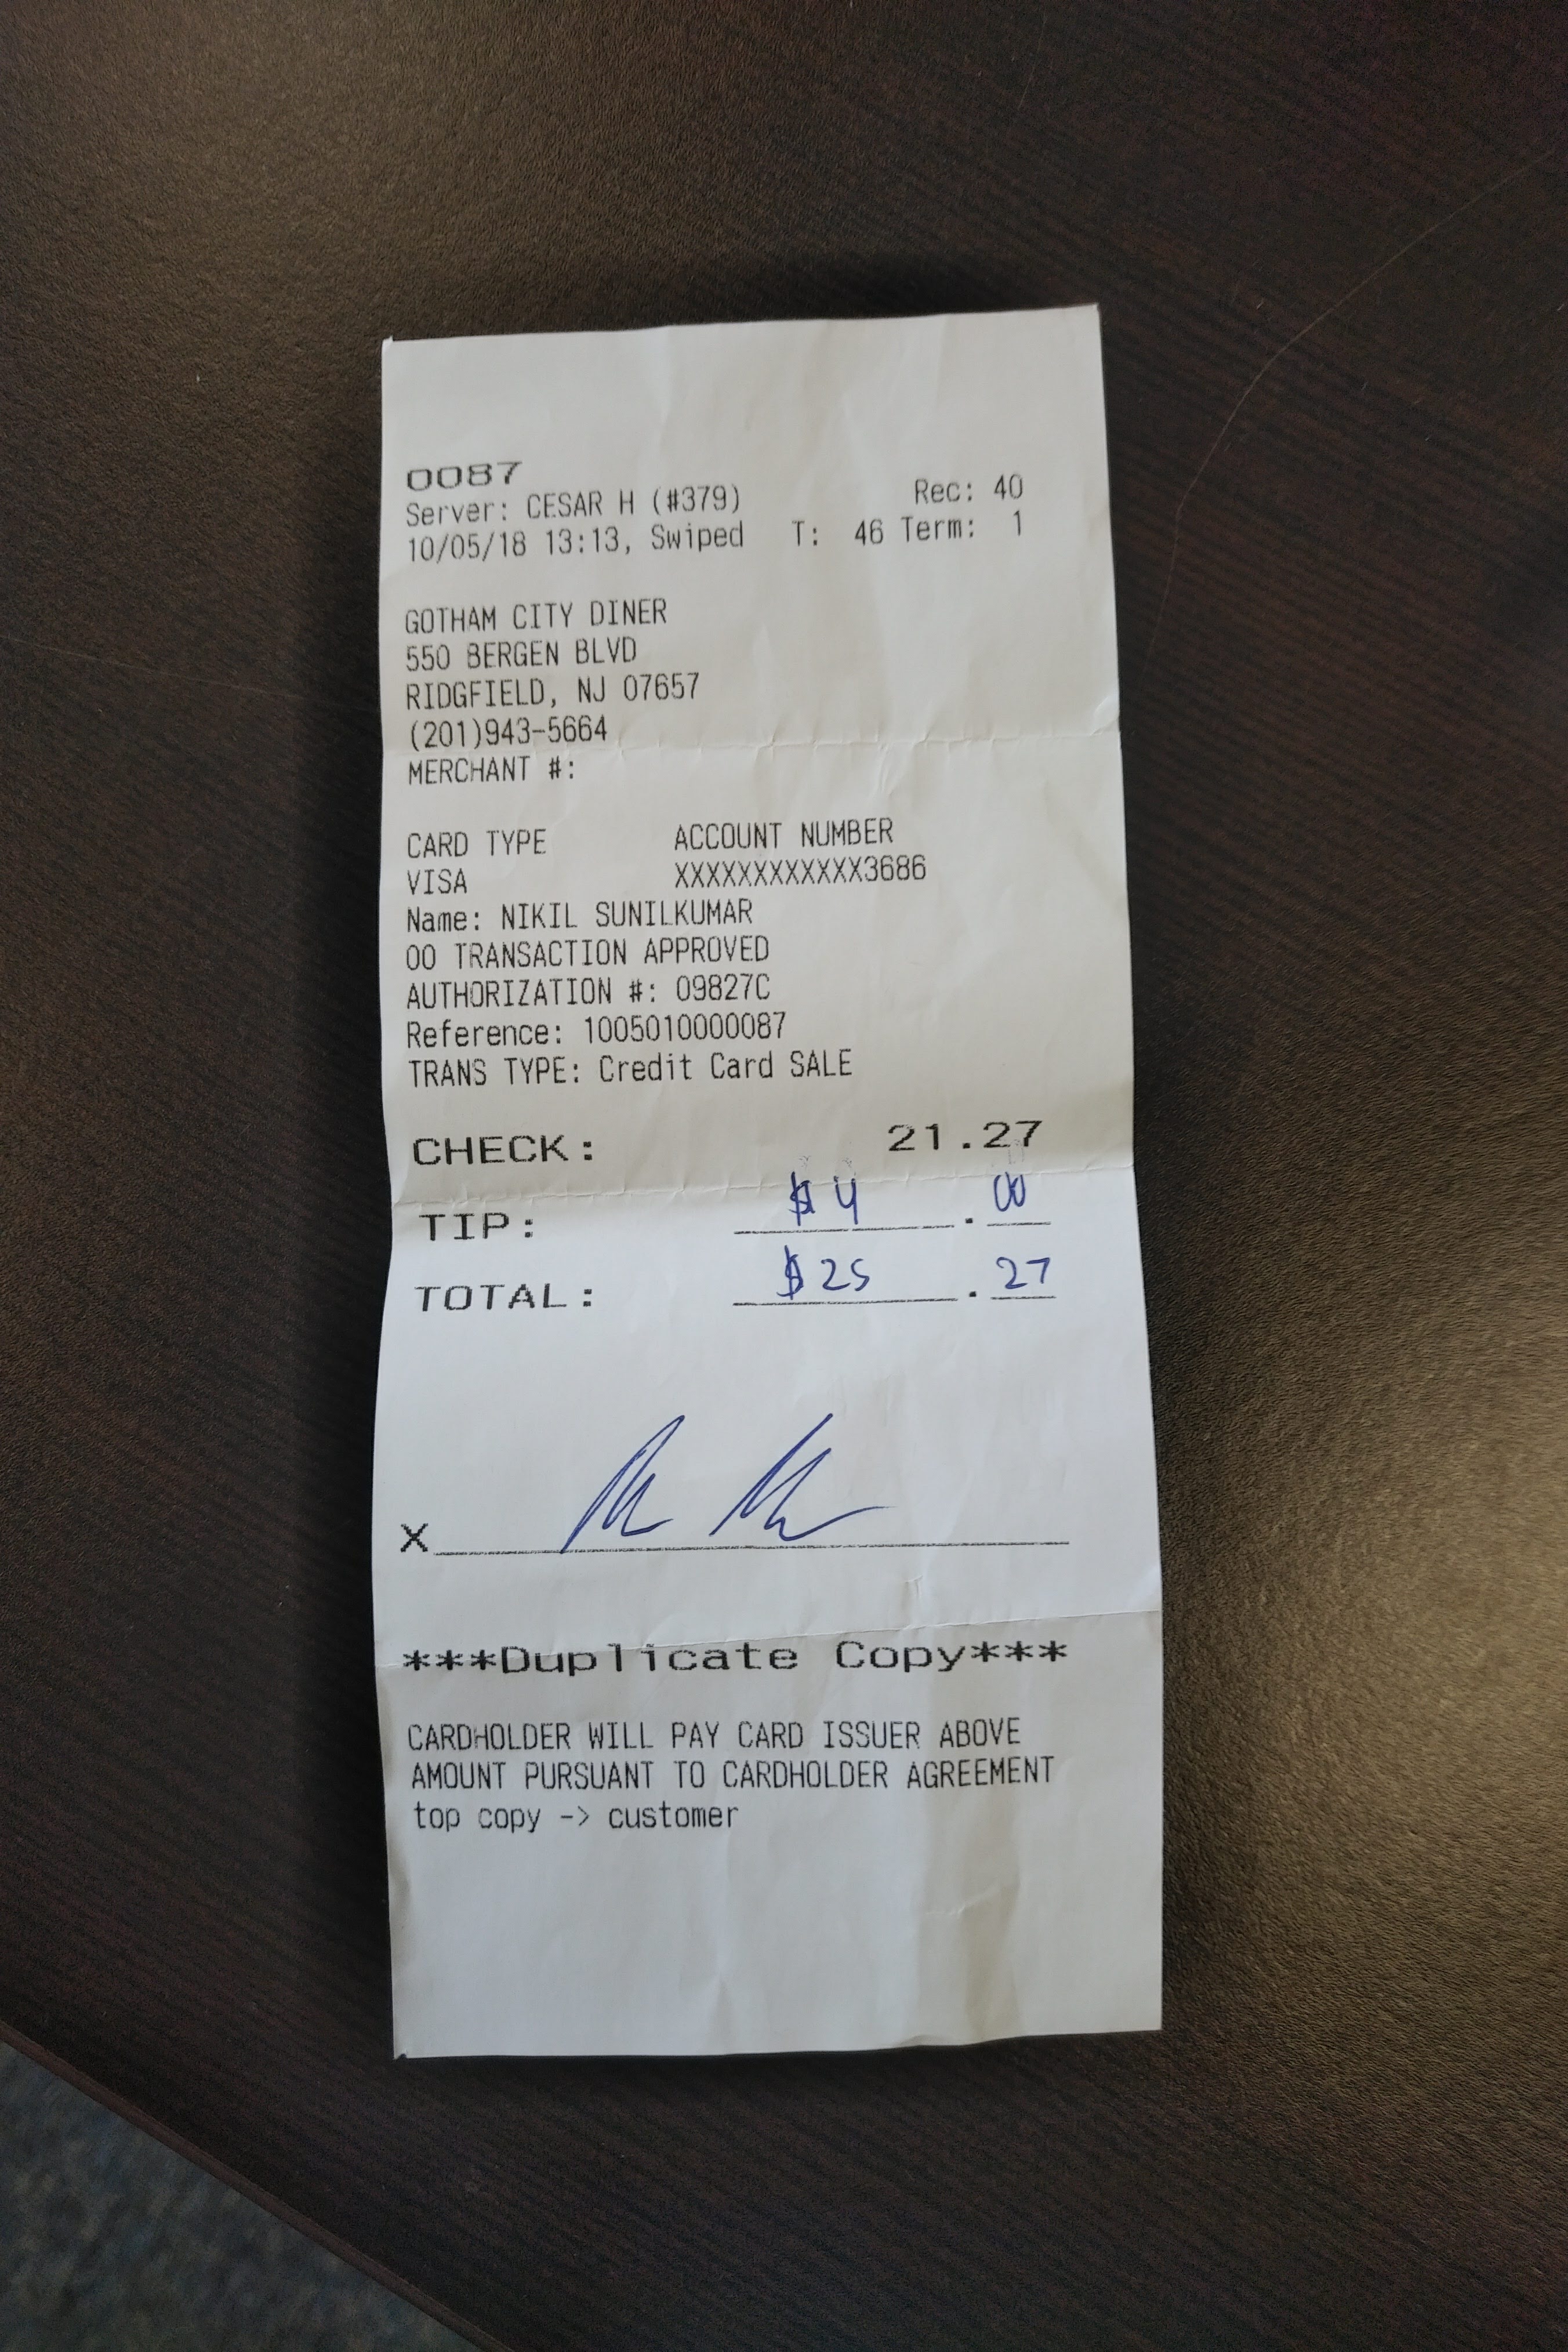 0087
Server: CESAR H (#379) Rec: 40
10/05/18 13:13, Swiped T: 46 Term: 1
GOTHAM CITY DINER
550 BERGEN BLVD
RIDGFIELD, NJ 07657
(201)943-5664
MERCHANT #:
CARD TYPE ACCOUNT NUMBER
VISA XXXXXXXXXXXX3686
Name: NIKIL SUNILKUMAR
00 TRANSACTION APPROVED
AUTHORIZATION #: 09827C
Reference: 1005010000087
TRANS TYPE: Credit Card SALE
CHECK: 21.27
TIP: $4.00
TOTAL: $25.27
X
***Duplicate Copy***
CARDHOLDER WILL PAY CARD ISSUER ABOVE
AMOUNT PURSUANT TO CARDHOLDER AGREEMENT
top copy -> customer